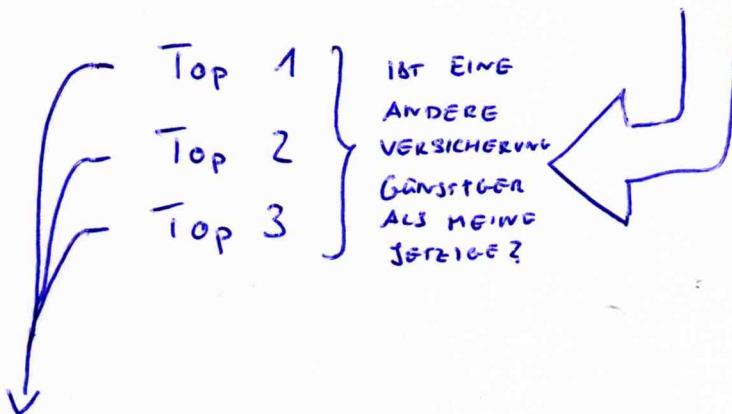 Top 1
Top 2
Top 3
IST EINE
ANDERE
VERSICHERUNG
GÜNSTGER
ALS MEINE
JETZIGE?